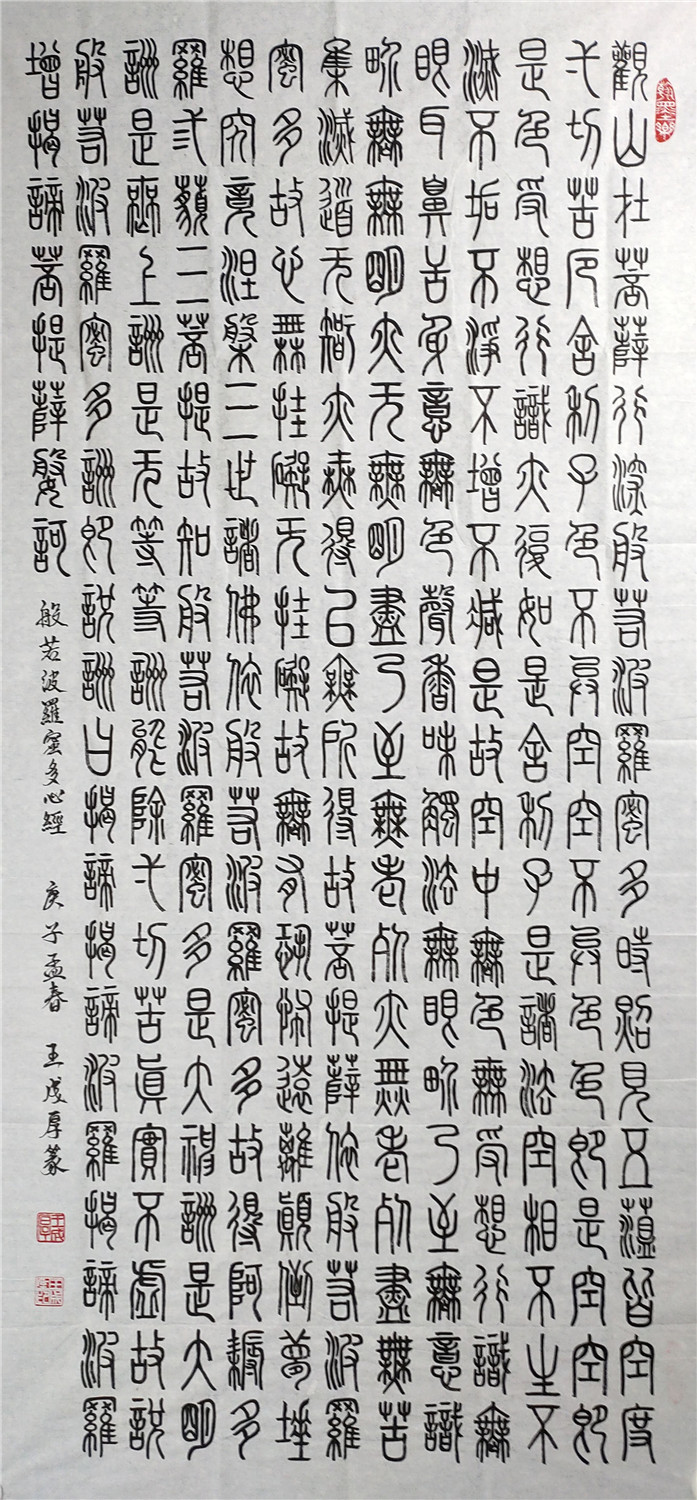 觀自在菩薩行深般若波羅蜜多時照見五蘊皆空度
一切苦厄舍利子色不異空空不異色色即是空空即
是色受想行識亦復如是舍利子是諸法空相不生不
滅不垢不淨不增不減是故空中無色無受想行識無
眼耳鼻舌身意無色聲香味觸法無眼界乃至無意識
界無無明亦无無明盡乃至無老死亦無老死盡無苦
集滅道无智亦無得以無所得故菩提薩依般若波羅
蜜多故心無挂礙无挂礙故無有恐怖遠離顛倒夢埵
想究竟涅槃三世諸佛依般若波羅蜜多故得阿耨多
羅三藐三菩提故知般若波羅蜜多是大神詶是大明
詶是無上詶是无等等詶能除一切苦真實不虛故說
般若波羅蜜多詶即說詶曰揭諦揭諦波羅揭諦波羅
增揭諦菩提薩婆訶
般若波羅蜜多心經 庚子孟春 王成厚篆